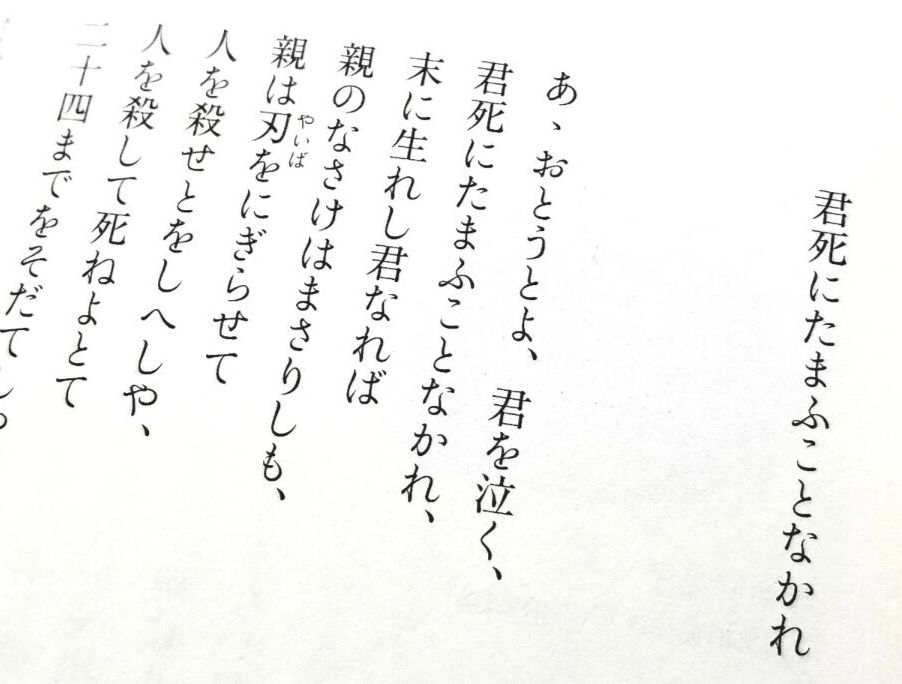 君死にたまふことなかれ
あゝおとうとよ、君を泣く、
君死にたまふことなかれ、
末に生れし君なれば
親のなさけはまさりしも、
親は刃をにぎらせて
やいば
人を殺せとをしへしや、
人を殺して死ねよとて
二十四までをそだて